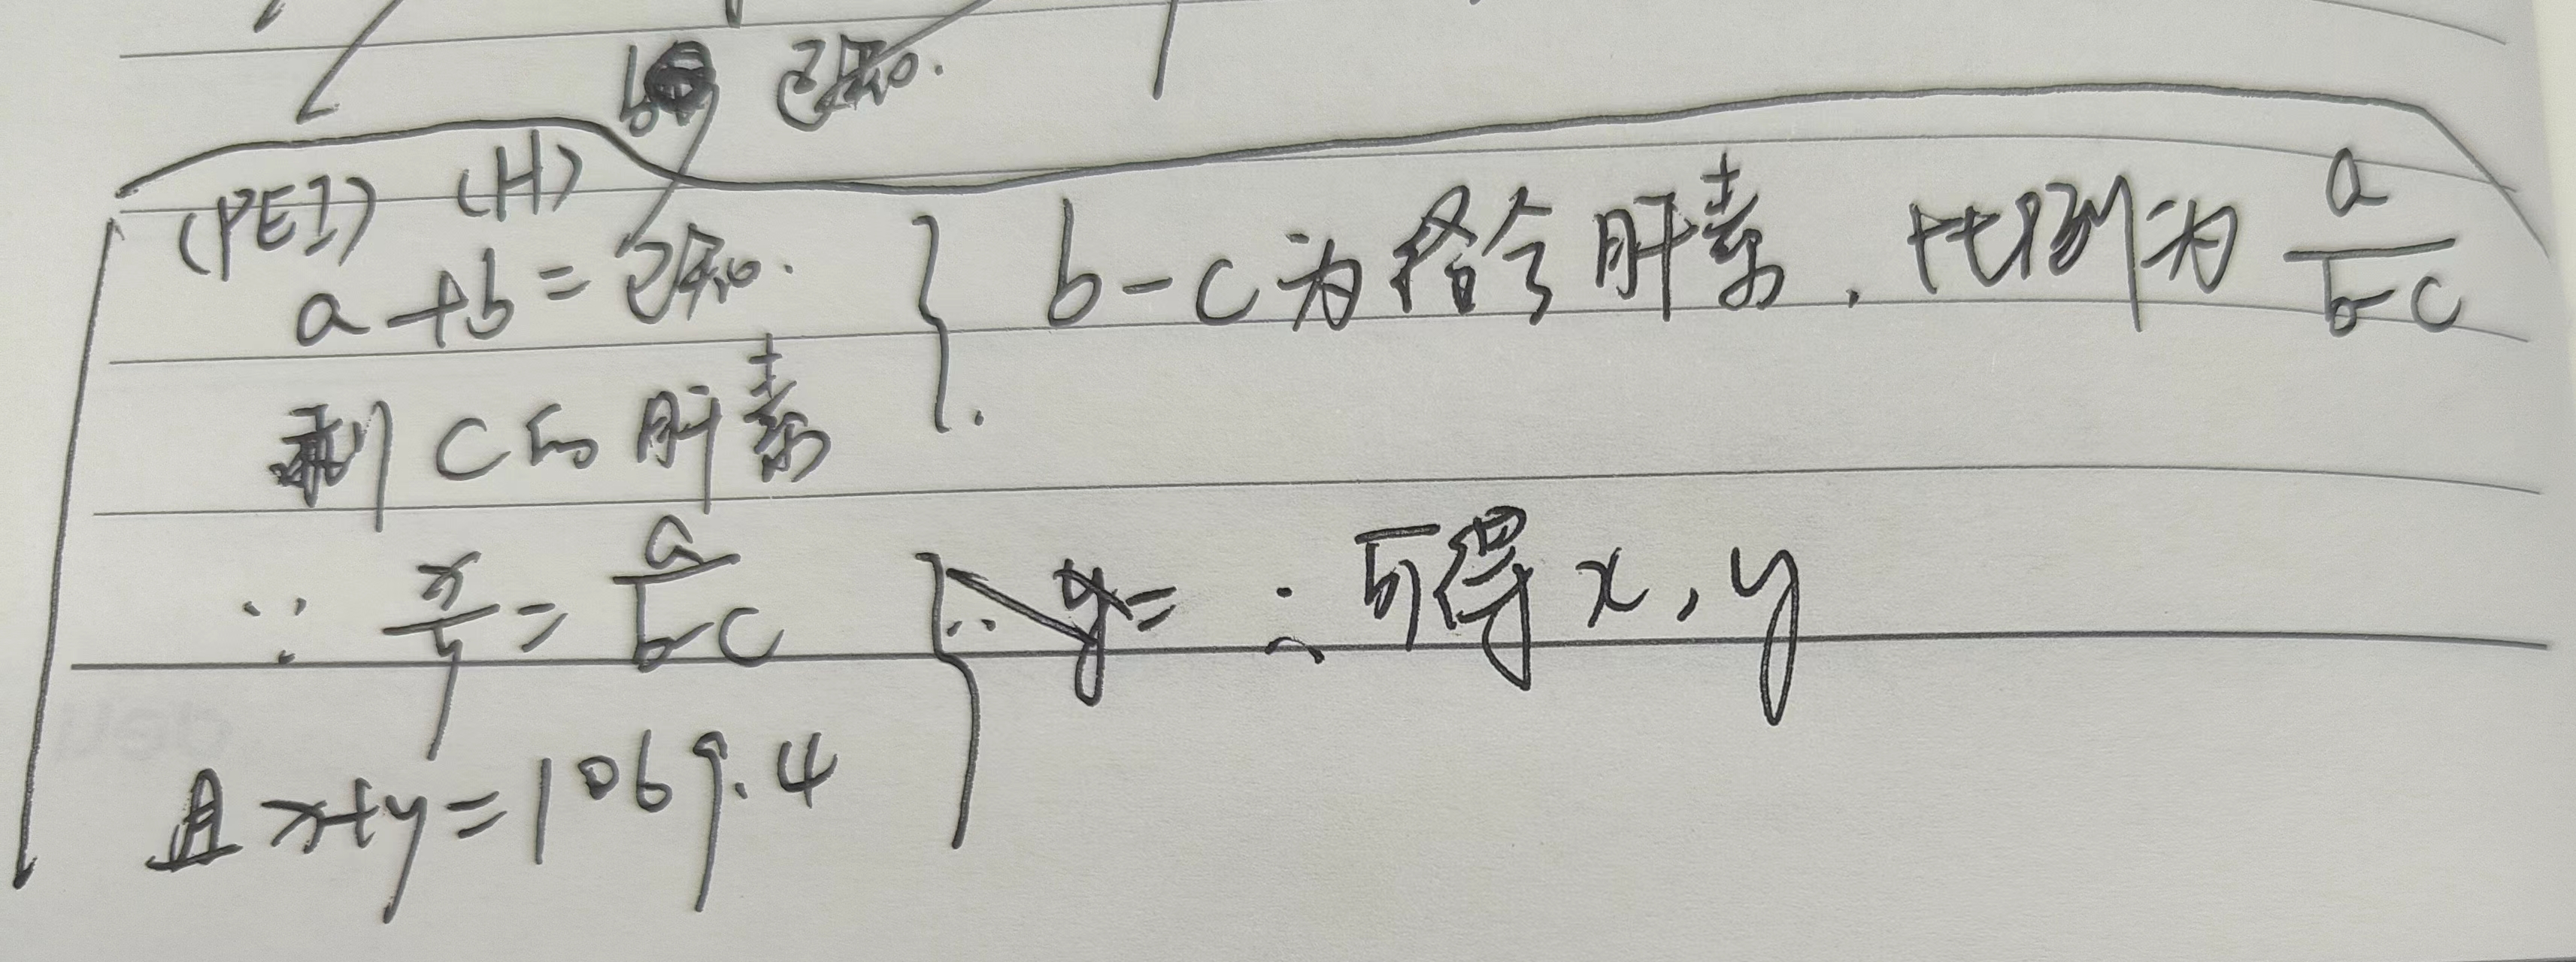 b 已知.
(PEI) (H)
a + b = 已知.
剩 C 的 肝素
b - c 为 结合 肝素 . 比例为 a/(b-c)
∵ x/y = a/(b-c)
且 x+y = 1069.4
y =
∴ 可得 x , y